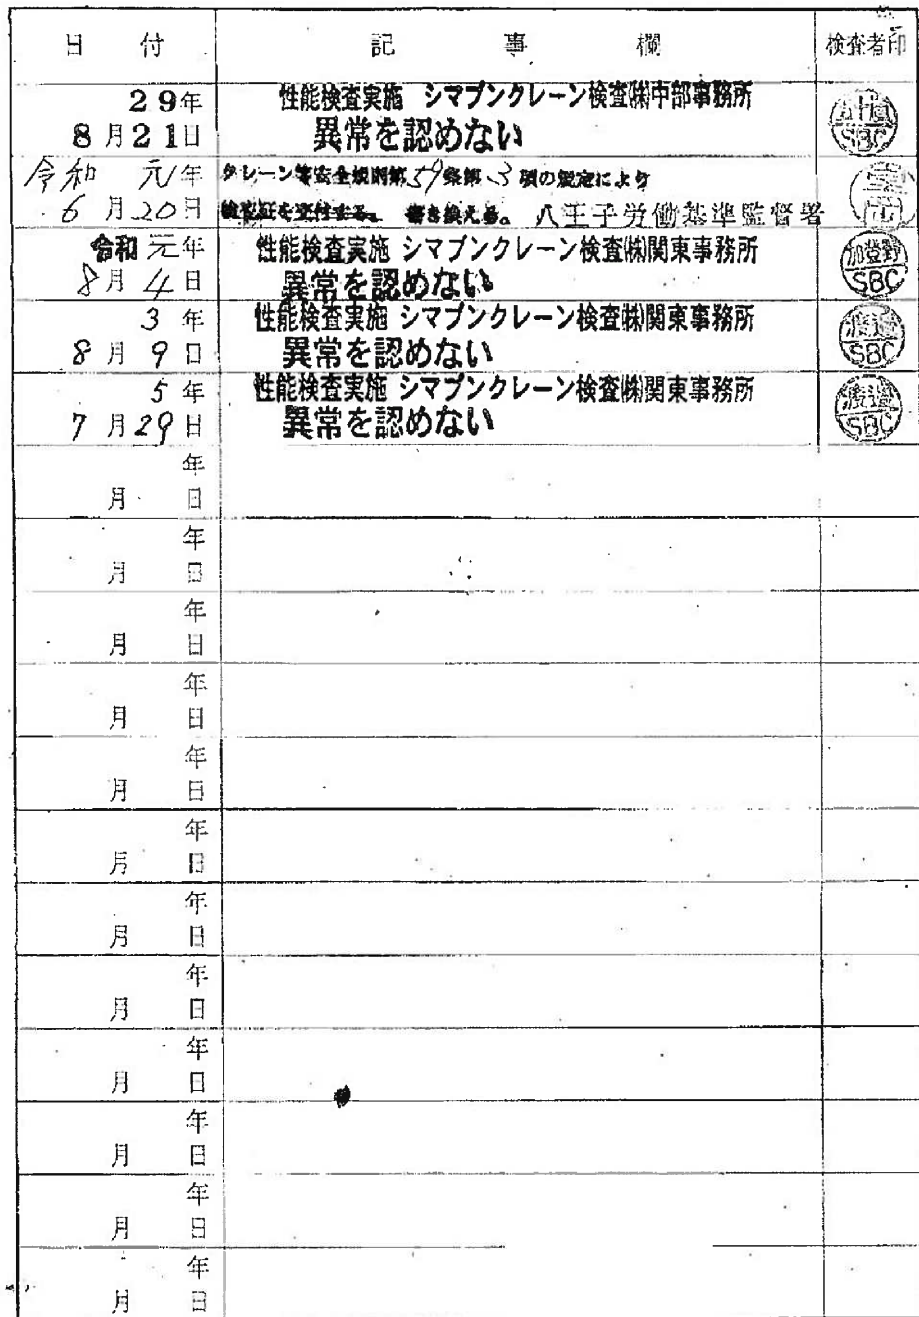 日 付 記 事 欄 検査者印
29年 性能検査実施 シマブンクレーン検査㈱中部事務所
8月21日 異常を認めない
SBC
令和 元年 クレーン等安全規則第59条第3項の規定により
6月20日 検査証を交付する。 書き換える。 八王子労働基準監督署
令和元年 性能検査実施 シマブンクレーン検査㈱関東事務所
8月4日 異常を認めない
加登野
SBC
3年 性能検査実施 シマブンクレーン検査㈱関東事務所
8月9日 異常を認めない
渡邉
SBC
5年 性能検査実施 シマブンクレーン検査㈱関東事務所
7月29日 異常を認めない
渡邉
SBC
年
月 日
年
月 日
年
月 日
年
月 日
年
月 日
年
月 日
年
月 日
年
月 日
年
月 日
年
月 日
年
月 日
年
月 日